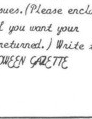 sues. (Please enclo
f you want your
returned.) Write
OWEEN GAZETTE